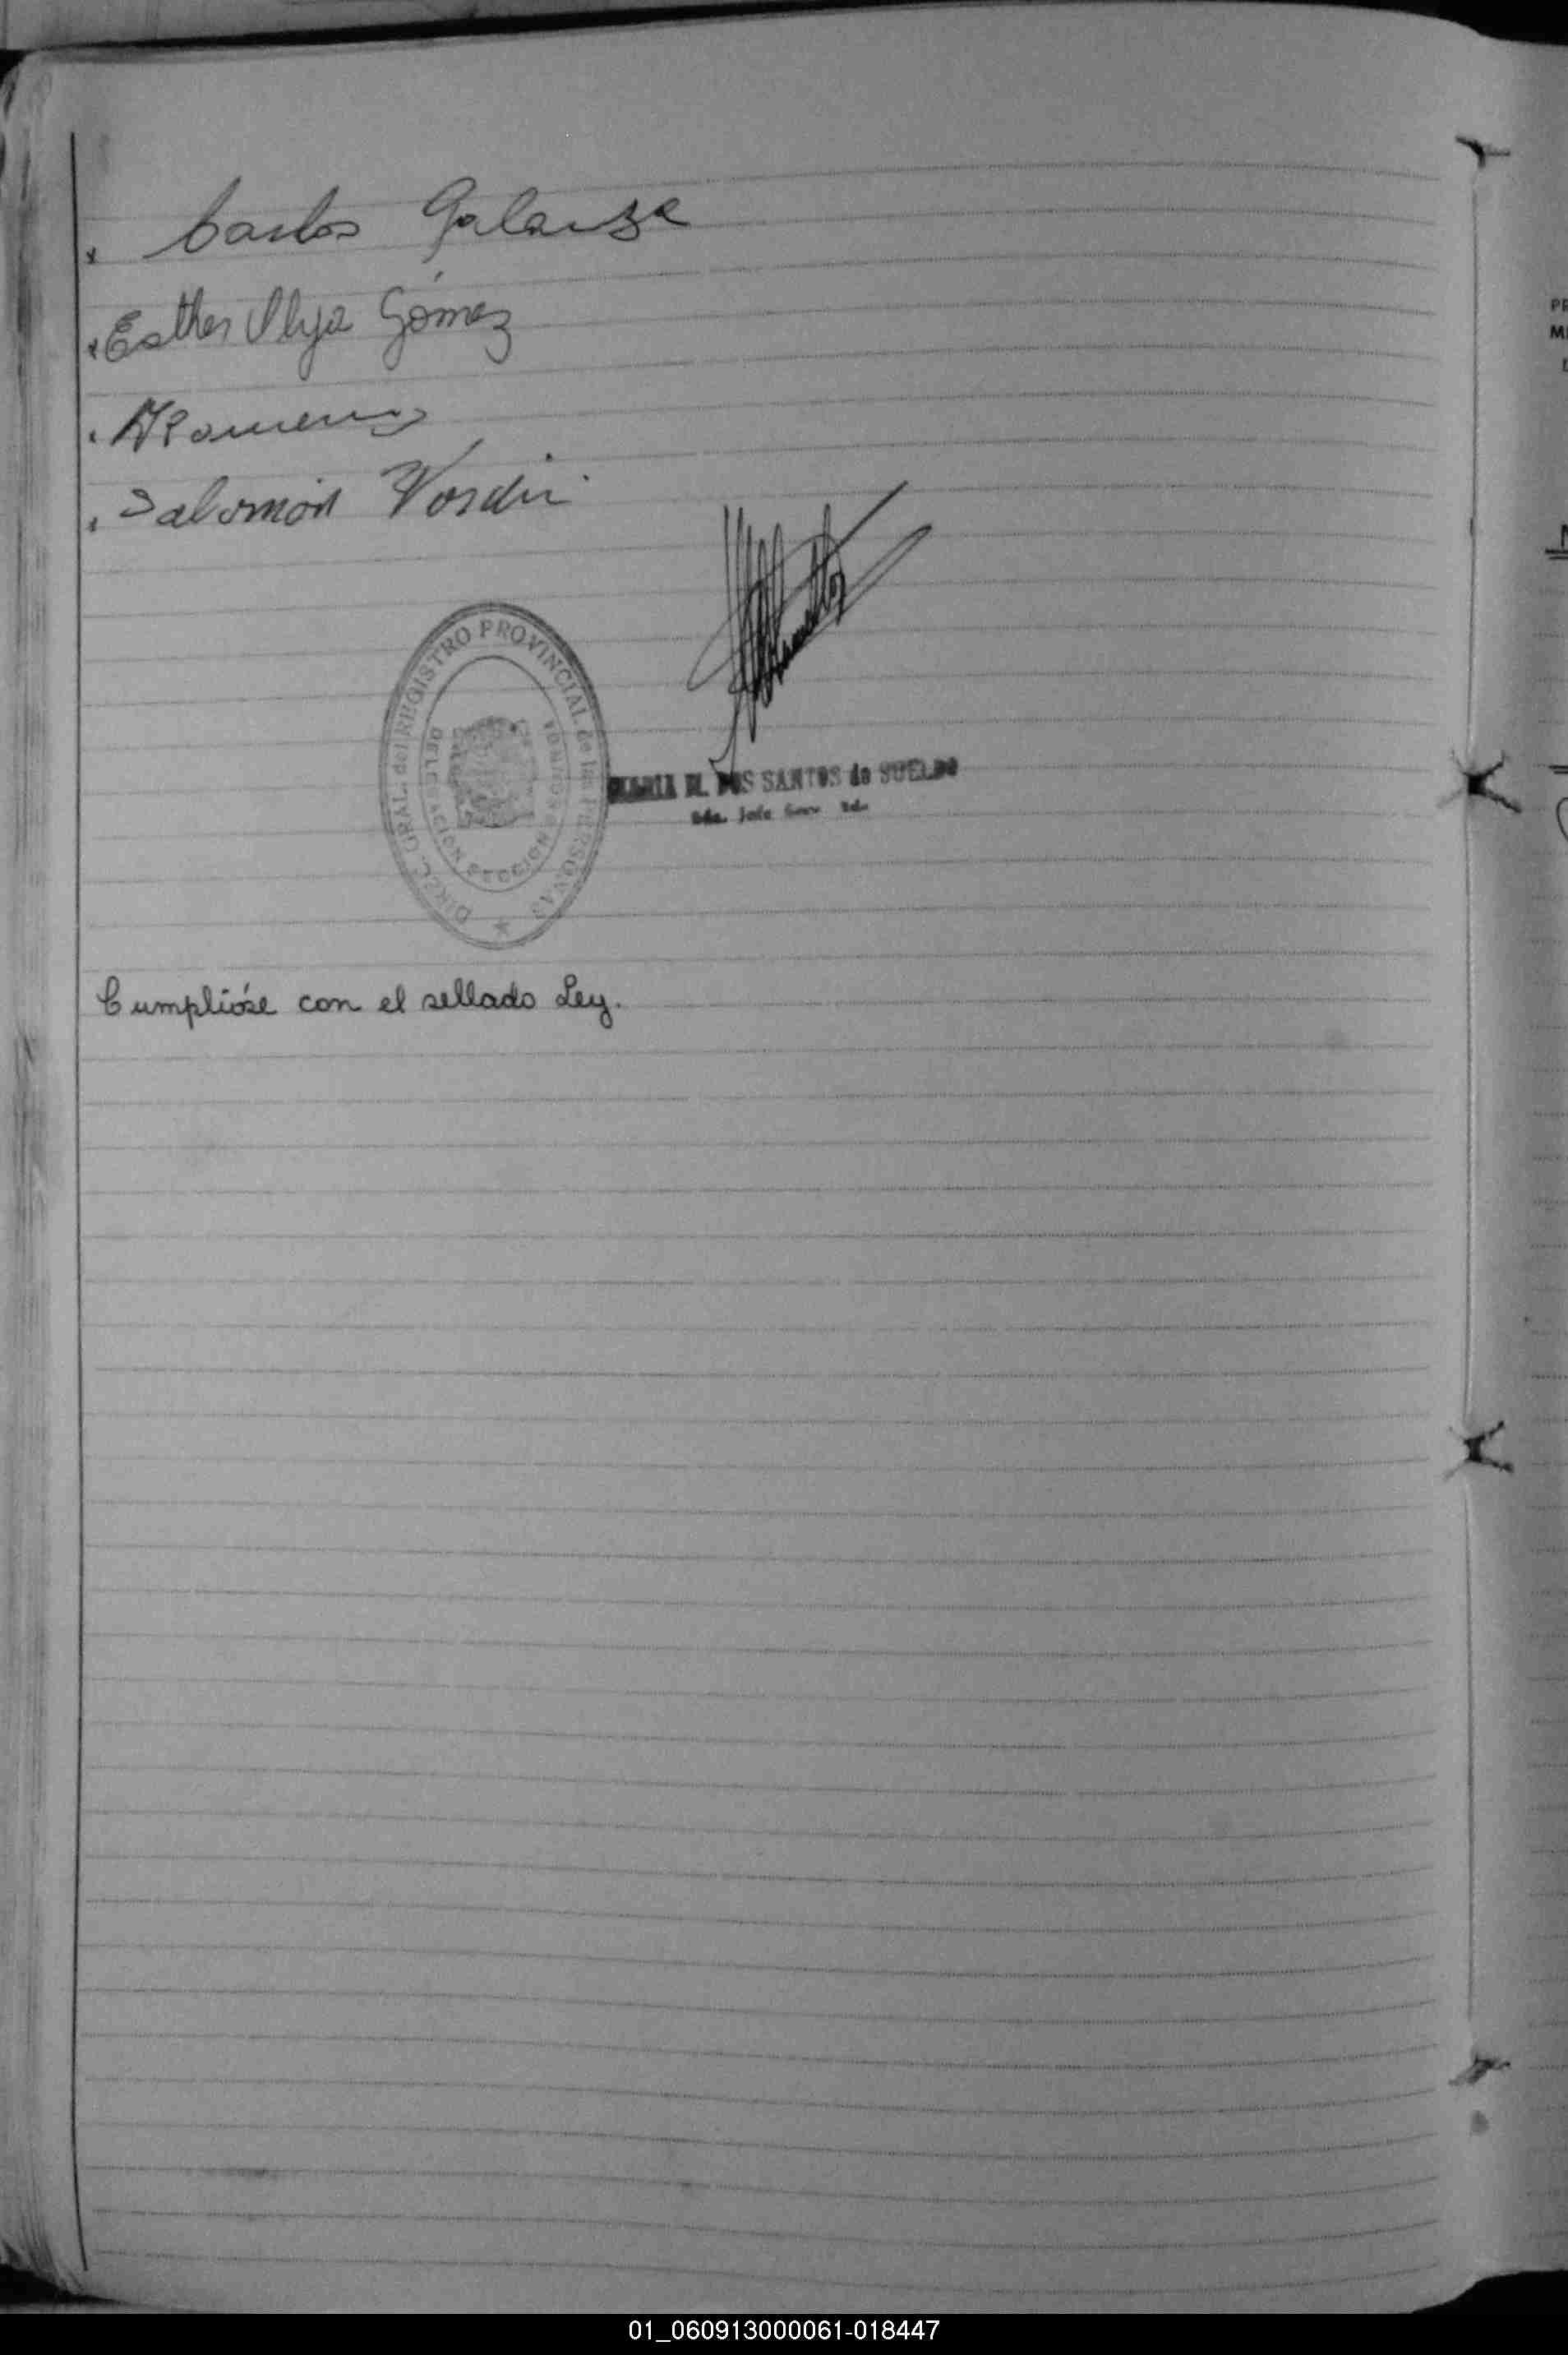 Carlos Galarza
Esther Ilya Gómez
ARomero
Salomón
DIREC. GRAL. del REGISTRO PROVINCIAL de las PERSONAS
DELEGACION SECCION
MARIA M. DOS SANTOS de SUELDO
Cumplióse con el sellado Ley.
01_060913000061-018447